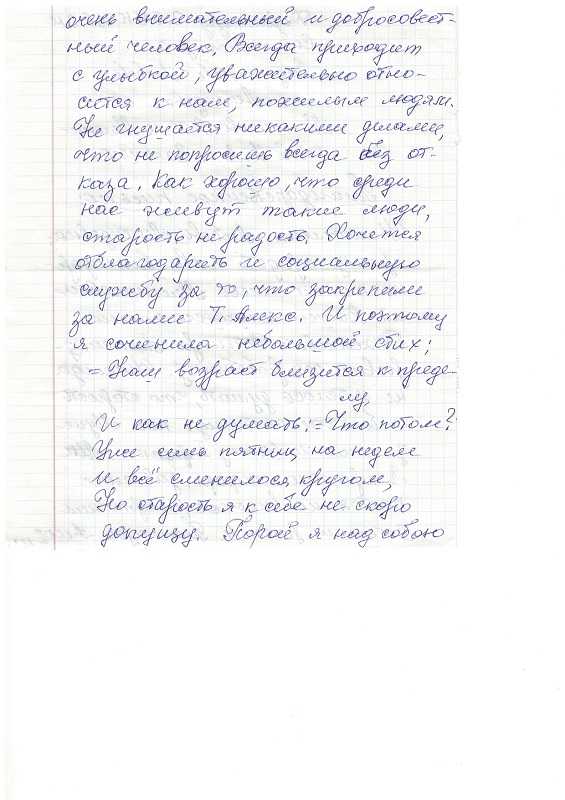 очень внимательный и добросовест-
ный человек. Всегда приходит
с улыбкой, уважительно отно-
сится к нам, пожилым людям.
Не гнушается никакими делами,
что не попросишь всегда без от-
каза. Как хорошо, что среди
нас живут такие люди,
старость не радость. Хочется
отблагодарить и социальную
службу за то, что закрепили
за нами Т. Алекс. И поэтому
я сочинила небольшой стих:
= Наш возраст близится к преде-
лу,
И как не думать: = Что потом?
Уже семь пятниц на неделе
И всё сменилося кругом,
Но старость я к себе не скоро
допущу. Порой я над собою